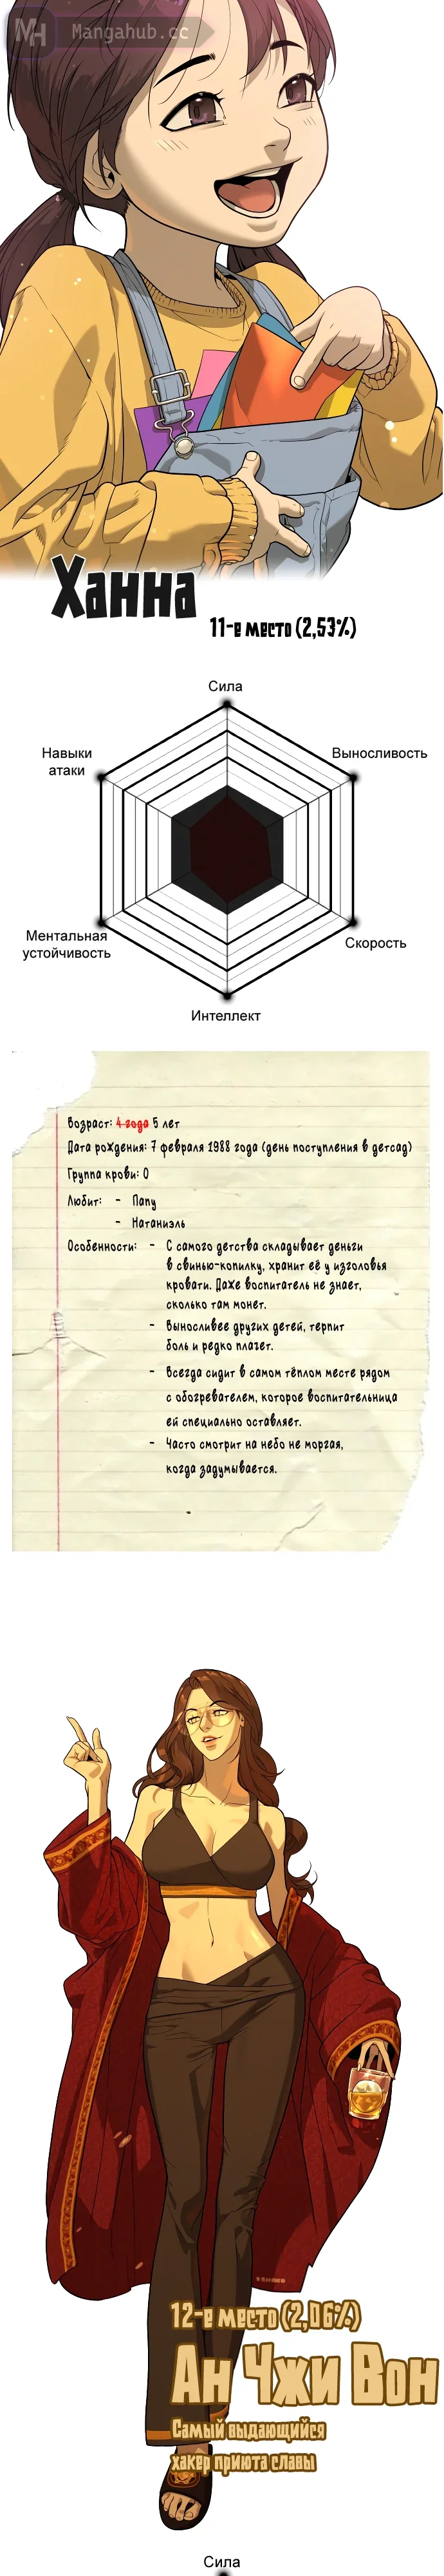 MH Mangahub.cc
Ханна
11-е место (2,53%)
Сила
Навыки
атаки
Выносливость
Ментальная
устойчивость
Скорость
Интеллект
Возраст: 4 года 5 лет
Дата рождения: 7 февраля 1988 года (день поступления в детсад)
Группа крови: 0
Любит: - Папу
- Натаниэль
Особенности: - С самого детства складывает деньги
в свинью-копилку, хранит её у изголовья
кровати. Даже воспитатель не знает,
сколько там монет.
- Выносливее других детей, терпит
боль и редко плачет.
- Всегда сидит в самом тёплом месте рядом
с обогревателем, которое воспитательница
ей специально оставляет.
- Часто смотрит на небо не моргая,
когда задумывается.
12-е место (2,06%)
Ан Чжи Вон
Самый выдающийся
хакер приюта славы
Сила